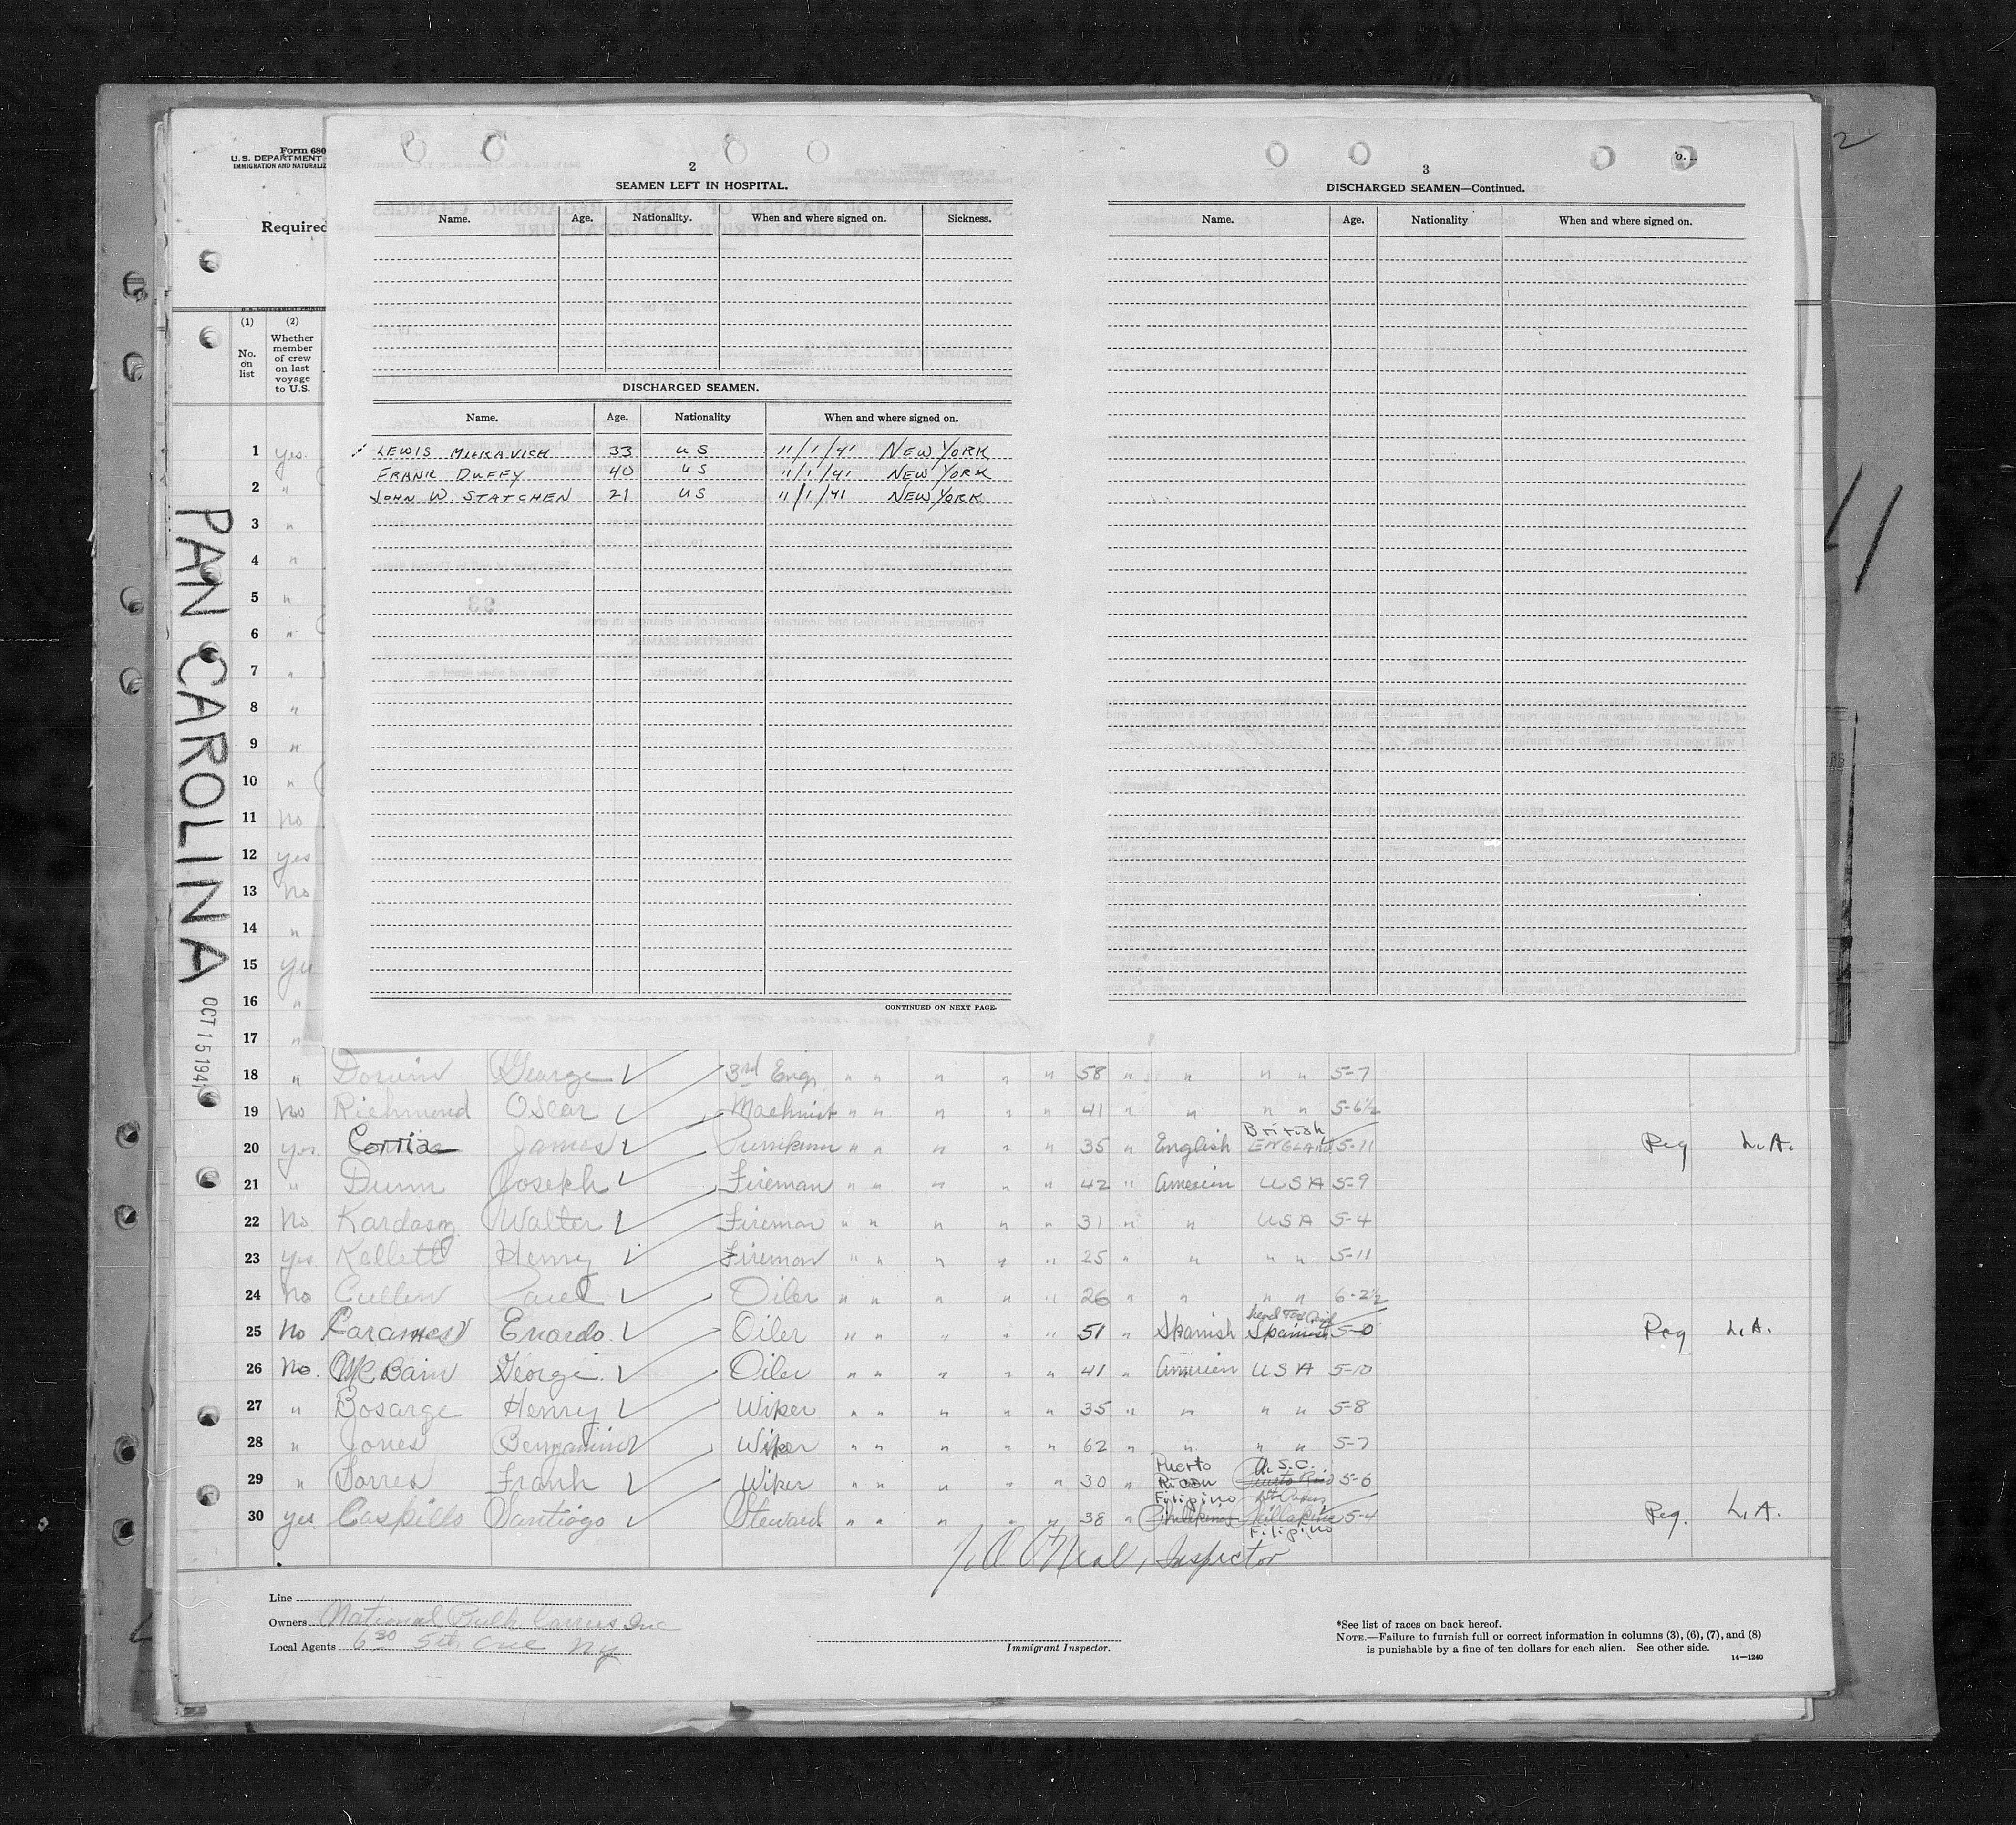 Form 680
U.S. DEPARTMENT
IMMIGRATION AND NATURALIZ
Required
(1) (2)
No. on list
Whether member of crew on last voyage to U.S.
PAN CAROLINA
OCT 15 1941
2
SEAMEN LEFT IN HOSPITAL.
Name. Age. Nationality. When and where signed on. Sickness.
DISCHARGED SEAMEN.
Name. Age. Nationality When and where signed on.
LEWIS 33 US 11/1/41 NEW YORK
FRANK DUFFY 40 US 11/1/41 NEW YORK
JOHN W. STATCHEN 21 US 11/1/41 NEW YORK
CONTINUED ON NEXT PAGE.
3
DISCHARGED SEAMEN—Continued.
Name. Age. Nationality When and where signed on.
1 yes.
2 "
3 "
4 "
5 "
6 "
7 "
8 "
9 "
10 "
11 No
12 yes
13 No
14 "
15 yes
16 "
17 "
18 " George 3rd Engr. " " " " " 58 " " " " 5-7
19 No Richmond Oscar Machinist " " " " " 41 " " " " 5-6½
20 yes James " " " " " 35 " English British ENGLAND 5-11 Reg L.A.
21 " Dunn Joseph Fireman " " " " " 42 " American USA 5-9
22 No Walter Fireman " " " " " 31 " " USA 5-4
23 yes Kellett Henry Fireman " " " " " 25 " " " " 5-11
24 No Cullen Paul Oiler " " " " " 26 " " " " 6-2½
25 No Oiler " " " " " 51 " Spanish Spanish 5-0 Reg L.A.
26 No. McBain George Oiler " " " " " 41 " American USA 5-10
27 " Bosarge Henry Wiper " " " " " 35 " " " " 5-8
28 " Jones Benjamin Wiper " " " " " 62 " " " " 5-7
29 " Torres Frank Wiper " " " " " 30 " Puerto Rican U.S.C. Puerto Rico 5-6
30 yes Santiago Steward " " " " " 38 " Filipino Filipino 5-4 Reg. L.A.
O'Neal, Inspector
Line
Owners National Bulk Carriers Inc
Local Agents 630 5th Ave NY
Immigrant Inspector.
*See list of races on back hereof.
NOTE.—Failure to furnish full or correct information in columns (3), (6), (7), and (8)
is punishable by a fine of ten dollars for each alien. See other side.
14—1240